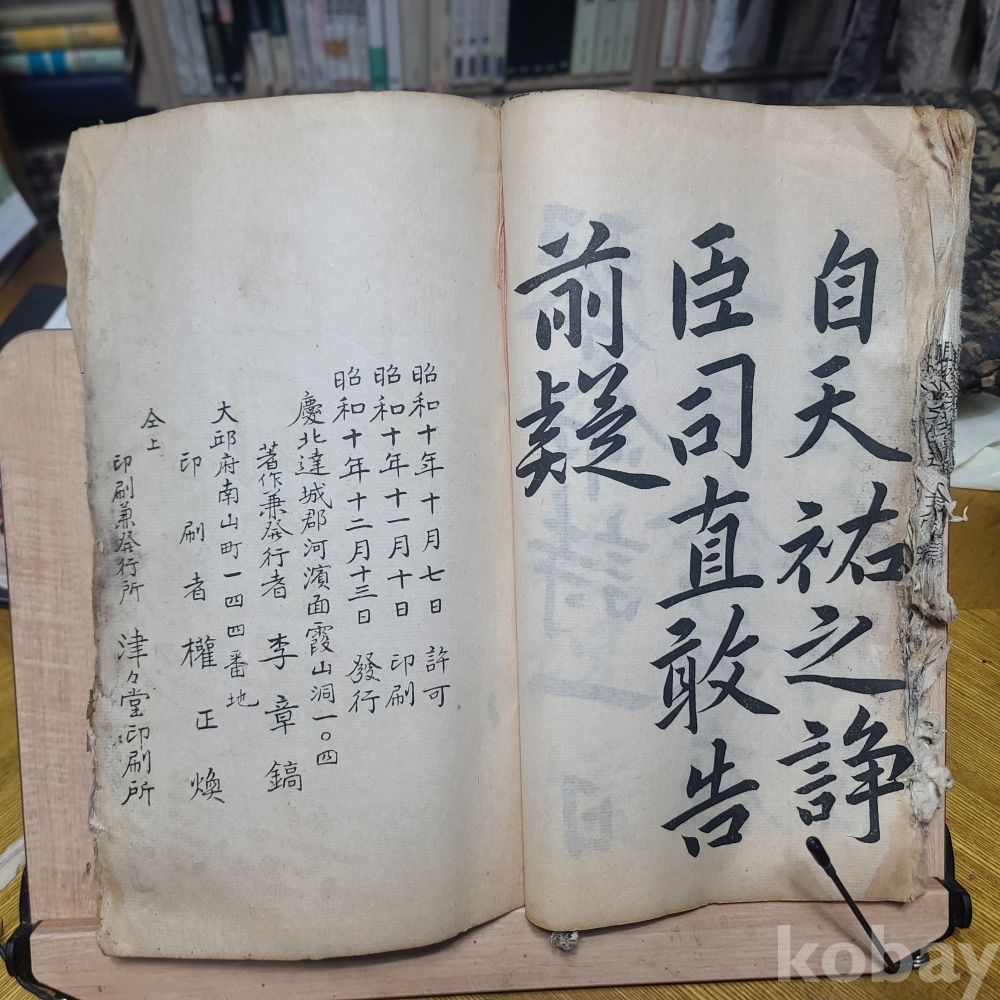 自天祐之諍
臣司直敢告
前疑
昭和十年十月七日 許可
昭和十年十一月十日 印刷
昭和十年十二月十三日 發行
慶北達城郡河濱面霞山洞一〇四
著作兼發行者 李章鎬
大邱府南山町一四四番地
印刷者 權正煥
仝上
印刷兼發行所 津々堂印刷所
kobay